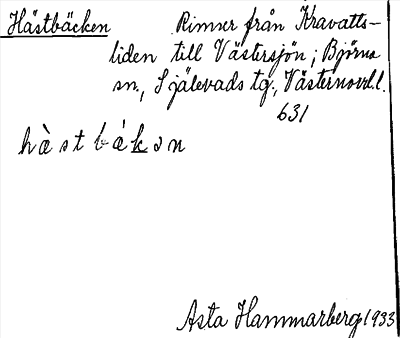 Hästbäcken Rinner från Kravatts-
liden till Västersjön; Björna
sn., Själevads tg., Västernorrl.l.
631
hὰstbákən
Asta Hammarberg 1933